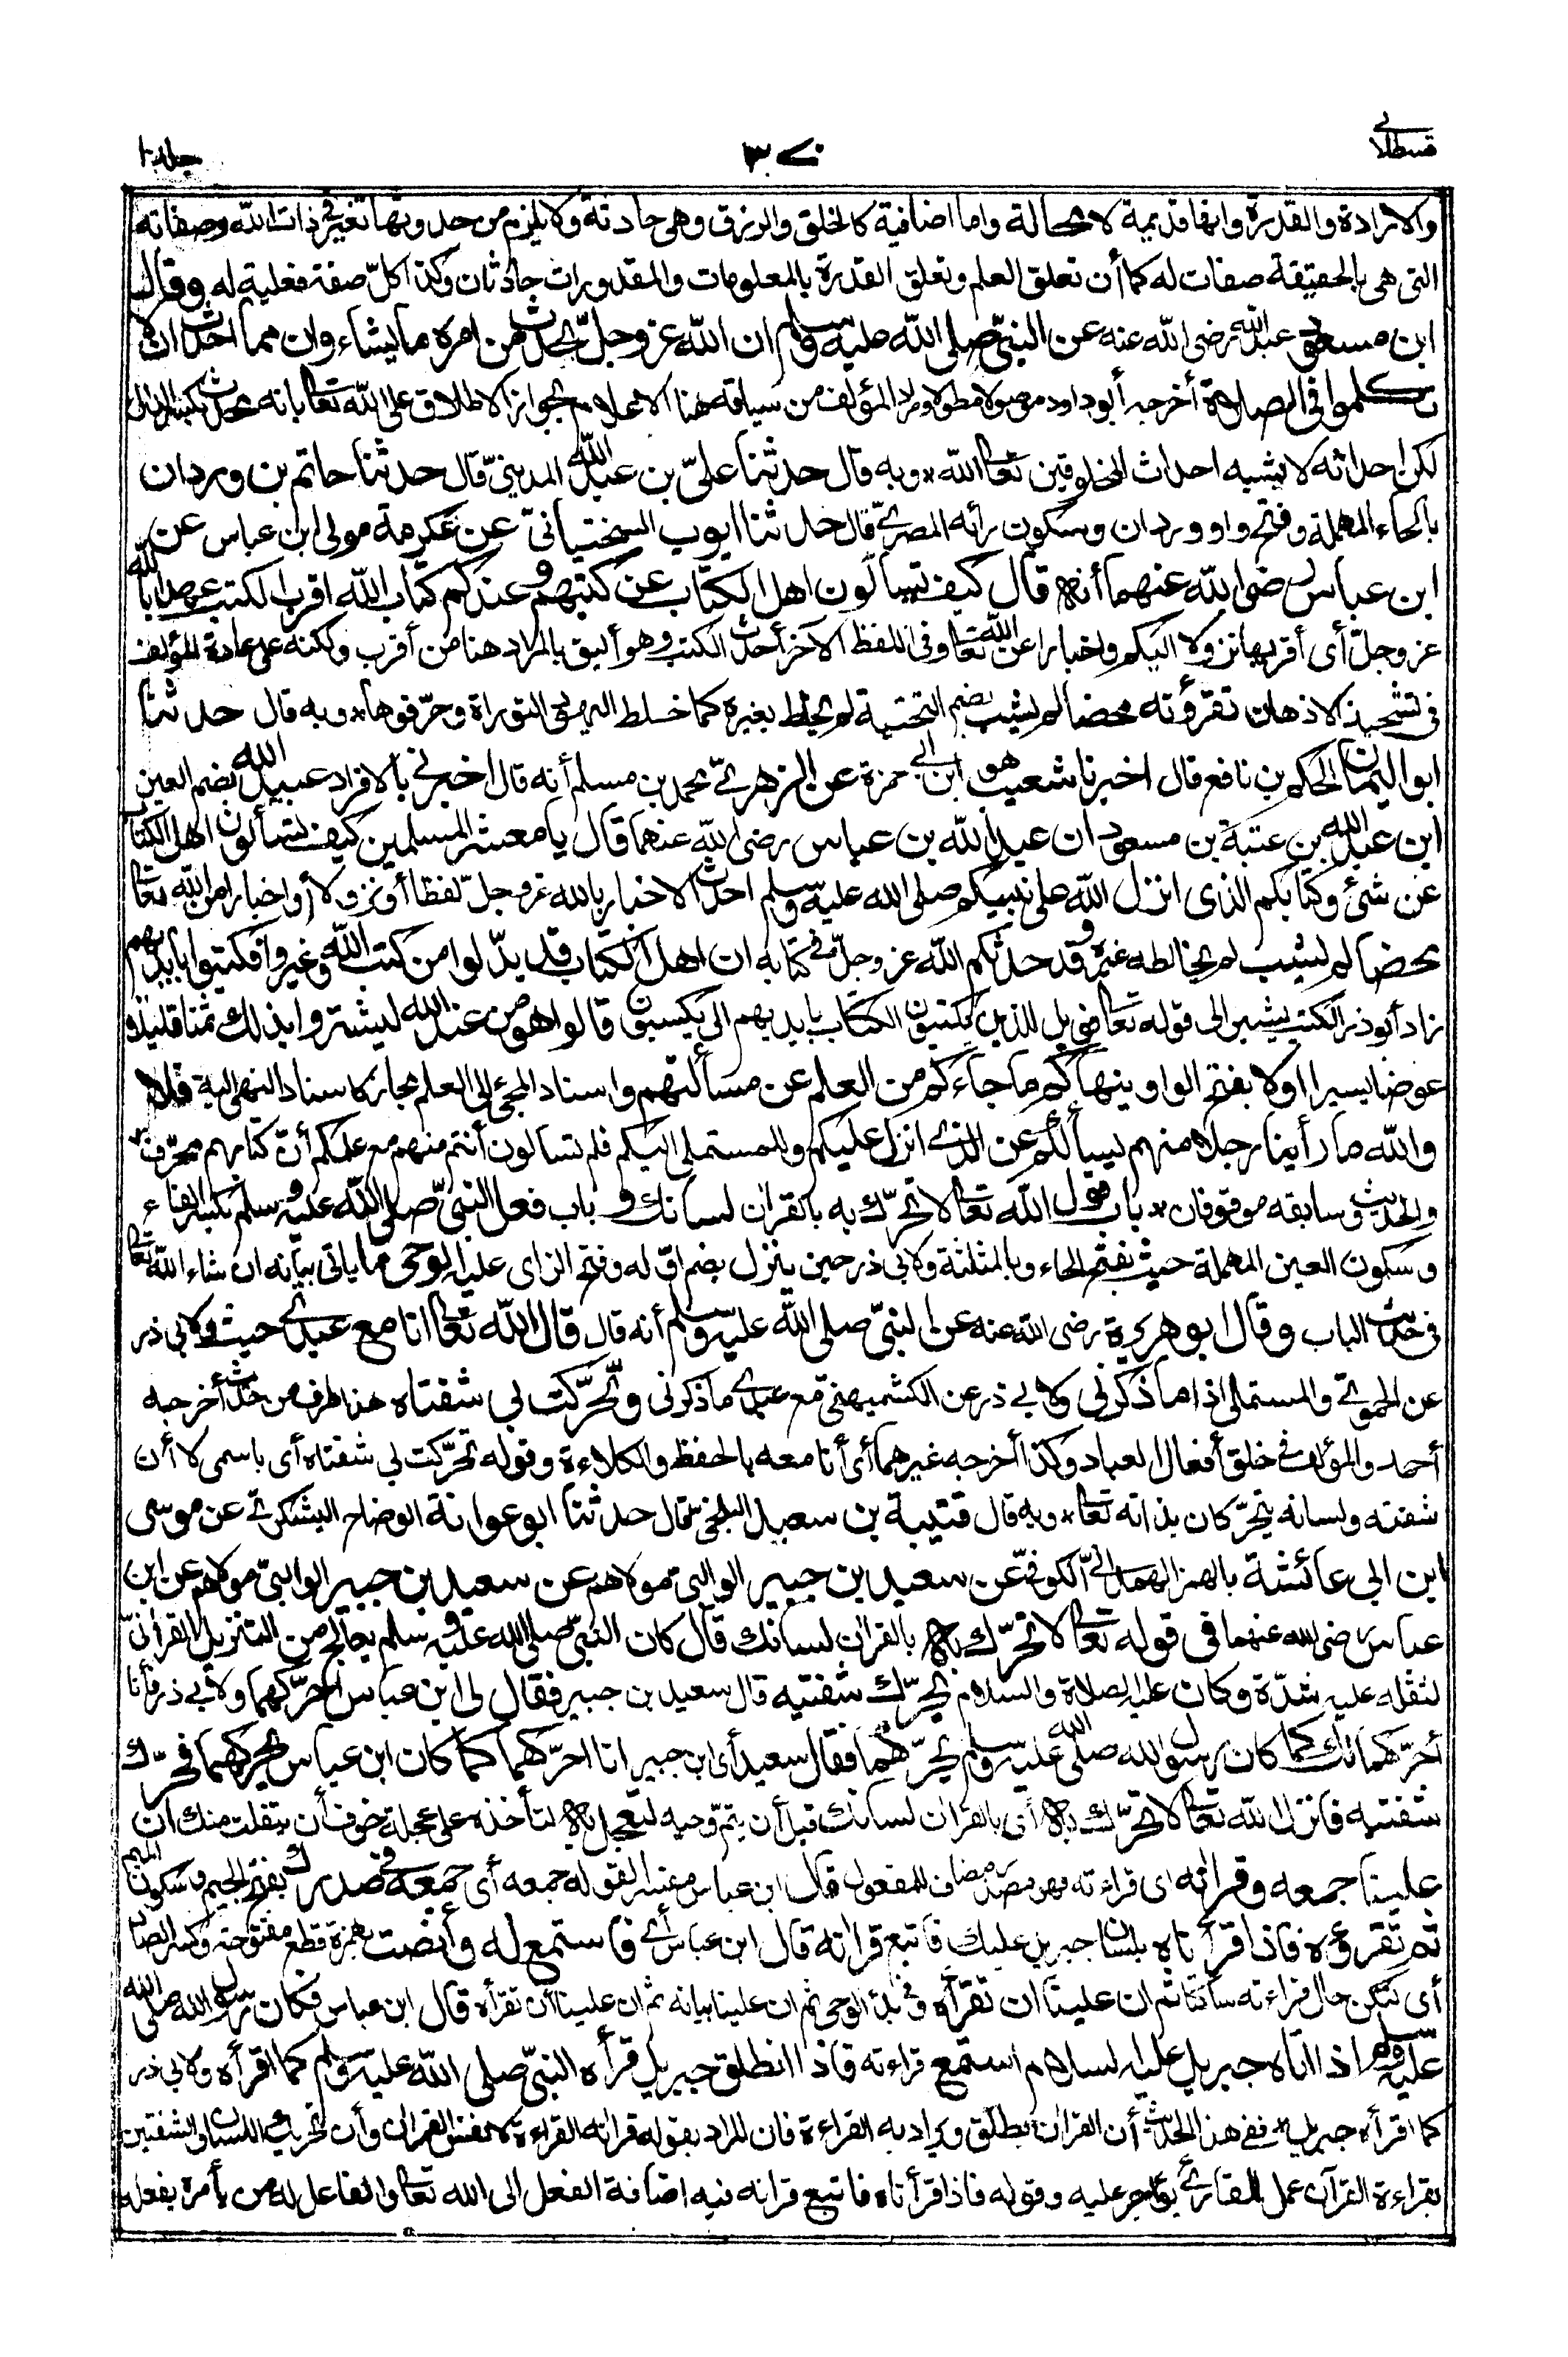 قسطلانى
٣٧٠
جلد ١٠
والارادة والقدرة وانها قديمة لا محالة واما اضافية كالخلق والرزق وهى حادثة ولا يلزم من حدوثها تغير فى ذات الله وصفاته
التى هى بالحقيقة صفات له كما أن تعلق العلم وتعلق القدرة بالمعلومات والمقدورات حادثان وكذا كل صفة فعلية له وقال
ابن مسعود عبد الله رضى الله عنه عن النبىّ صلى الله عليه وسلم ان الله عز وجلّ يحدث من امره ما يشاء وان مما احدث ان لا
تكلموا فى الصلاة أخرجه أبو داود موصولا مطولا ومراد المؤلف من سياقه هنا الاعلام بجواز الاطلاق على الله تعالى بانه محدث بكسر الدال
لكن احداثه لا يشبه احداث المخلوقين تعالى الله * وبه قال حدثنا علىّ بن عبد الله المدينىّ قال حدثنا حاتم بن وردان
بالحاء المهملة وفتح واو وردان وسكون رائه المصرىّ قال حدثنا ايوب السختيانىّ عن عكرمة مولى ابن عباس عن
ابن عباس رضى الله عنهما أنه قال كيف تسألون اهل الكتاب عن كتبهم وعندكم كتاب الله اقرب الكتب عهدا بالله
عز وجلّ أى أقربها نزولا اليكم واخبارا عن الله تعالى وفى اللفظ الآخر أحدث الكتب وهو أليق بالمراد هنا من أقرب ولكنه على عادة المؤلف
فى تشحيذ الاذهان تقرؤنه محضا لم يشب بضم التحتية لم يخلط بغيره كما خلط اليهود التوراة وحرّفوها * وبه قال حدثنا
ابو اليمان الحكم بن نافع قال اخبرنا شعيب هو ابن ابى حمزة عن الزهرىّ محمد بن مسلم أنه قال اخبرنى بالافراد عبيد الله بضم العين
ابن عبد الله بن عتبة بن مسعود ان عبد الله بن عباس رضى الله عنهما قال يا معشر المسلمين كيف تسألون اهل الكتاب
عن شئ وكتابكم الذى انزل الله على نبيكم صلى الله عليه وسلم احدث الاخبار بالله عز وجلّ لفظا أو نزولا أو اخبارا من الله تعالى
محضا لم يشب لم يخالطه غيره وقد حدثكم الله عز وجلّ فى كتابه ان اهل الكتاب قد بدّلوا من كتب الله وغيروا فكتبوا بايديهم
زاد أبو ذر الكتب يشير الى قوله تعالى فويل للذين يكتبون الكتاب بايديهم الى يكسبون قالوا هو من عند الله ليشتروا بذلك ثمنا قليلا
عوضا يسيرا اولا بفتح الواو ينهاكم ما جاءكم من العلم عن مسألتهم واسناد المجئ الى العلم مجاز كاسناد النهى اليه فلا
والله ما رأينا رجلا منهم يسألكم عن الذى انزل عليكم وللمستملى اليكم فلم تسألون أنتم منهم مع علمكم أنّ كتابهم محرّف
والحديث وسابقه موقوفان * باب قول الله تعالى لا تحرّك به بالقران لسانك و باب فعل النبىّ صلى الله عليه وسلم بكسر الفاء
وسكون العين المهملة حيث بفتح الحاء وبالمثلثة ولابى ذر حين ينزل بضم اوّله وفتح الزاى عليه الوحى مما ياتى بيانه ان شاء الله تعالى
فى حديث الباب وقال ابو هريرة رضى الله عنه عن النبىّ صلى الله عليه وسلم أنه قال قال الله تعالى انا مع عبدى حيث ولابى ذر
عن الحموىّ والمستملى اذا ما ذكرنى ولابى ذر عن الكشميهنىّ مع عبدى ما ذكرنى وتحرّكت بى شفتاه هذا طرف من حديث أخرجه
أحمد والمؤلف فى خلق أفعال العباد وكذا أخرجه غيرهما أى أنا معه بالحفظ والكلاءة وقوله تحرّكت بى شفتاه أى باسمى لا أن
شفته ولسانه يتحرّكان بذاته تعالى * وبه قال قتيبة بن سعيد البلخى قال حدثنا ابو عوانة الوضاح اليشكرىّ عن موسى
ابن ابى عائشة بالهمز الهمدانىّ الكوفىّ عن سعيد بن جبير الوالبىّ مولاهم عن سعيد بن جبير الوالبىّ مولاهم عن ابن
عباس رضى الله عنهما فى قوله تعالى لا تحرّك به بالقران لسانك قال كان النبىّ صلى الله عليه وسلم يعالج من التنزيل القرأنىّ
لثقله عليه شدّة وكان عليه الصلاة والسلام يحرّك شفتيه قال سعيد بن جبير فقال لى ابن عباس احرّكهما ولابى ذر فأنا
أحرّكهما لك كما كان رسول الله صلى الله عليه وسلم يحرّكهما فقال سعيد أى ابن جبير انا احرّكهما كما كان ابن عباس يحركهما فحرّك
شفتيه فانزل الله تعالى لا تحرّك به أى بالقران لسانك قبل أن يتمّ وحيه لتعجل به لتأخذه على عجلة خوف أن يتفلت منك ان
علينا جمعه وقرانه اى قراءته فهو مصدر مضاف للمفعول قال ابن عباس مفسرا لقوله جمعه أى جمعه فى صدرك بفتح الجيم وسكون الميم
ثم تقرؤه فاذا قرأناه بلسان جبريل عليك فاتبع قرانه قال ابن عباس أى فاستمع له وأنصت بهمزة قطع مفتوحة وكسر الصاد
أى لتكن حال قراءته ساكتا ثم ان علينا ان تقرأه وفى بدء الوحى ثم ان علينا بيانه ثم ان علينا أن تقرأه قال ابن عباس فكان رسول الله صلى الله
عليه وسلم اذا اتاه جبريل عليه السلام استمع قراءته فاذا انطلق جبريل قرأه النبىّ صلى الله عليه وسلم كما اقرأه ولابى ذر
كما اقرأه جبريل ففى هذا الحديث أن القران يطلق ويراد به القراءة فان المراد بقوله قرانه القراءة لا نفس القران وأن تحريك اللسان والشفتين
بقراءة القرآن عمل للقارئ يؤجر عليه وقوله فاذا قرأناه فاتبع قرانه فيه اضافة الفعل الى الله تعالى والفاعل له من يأمره بفعله